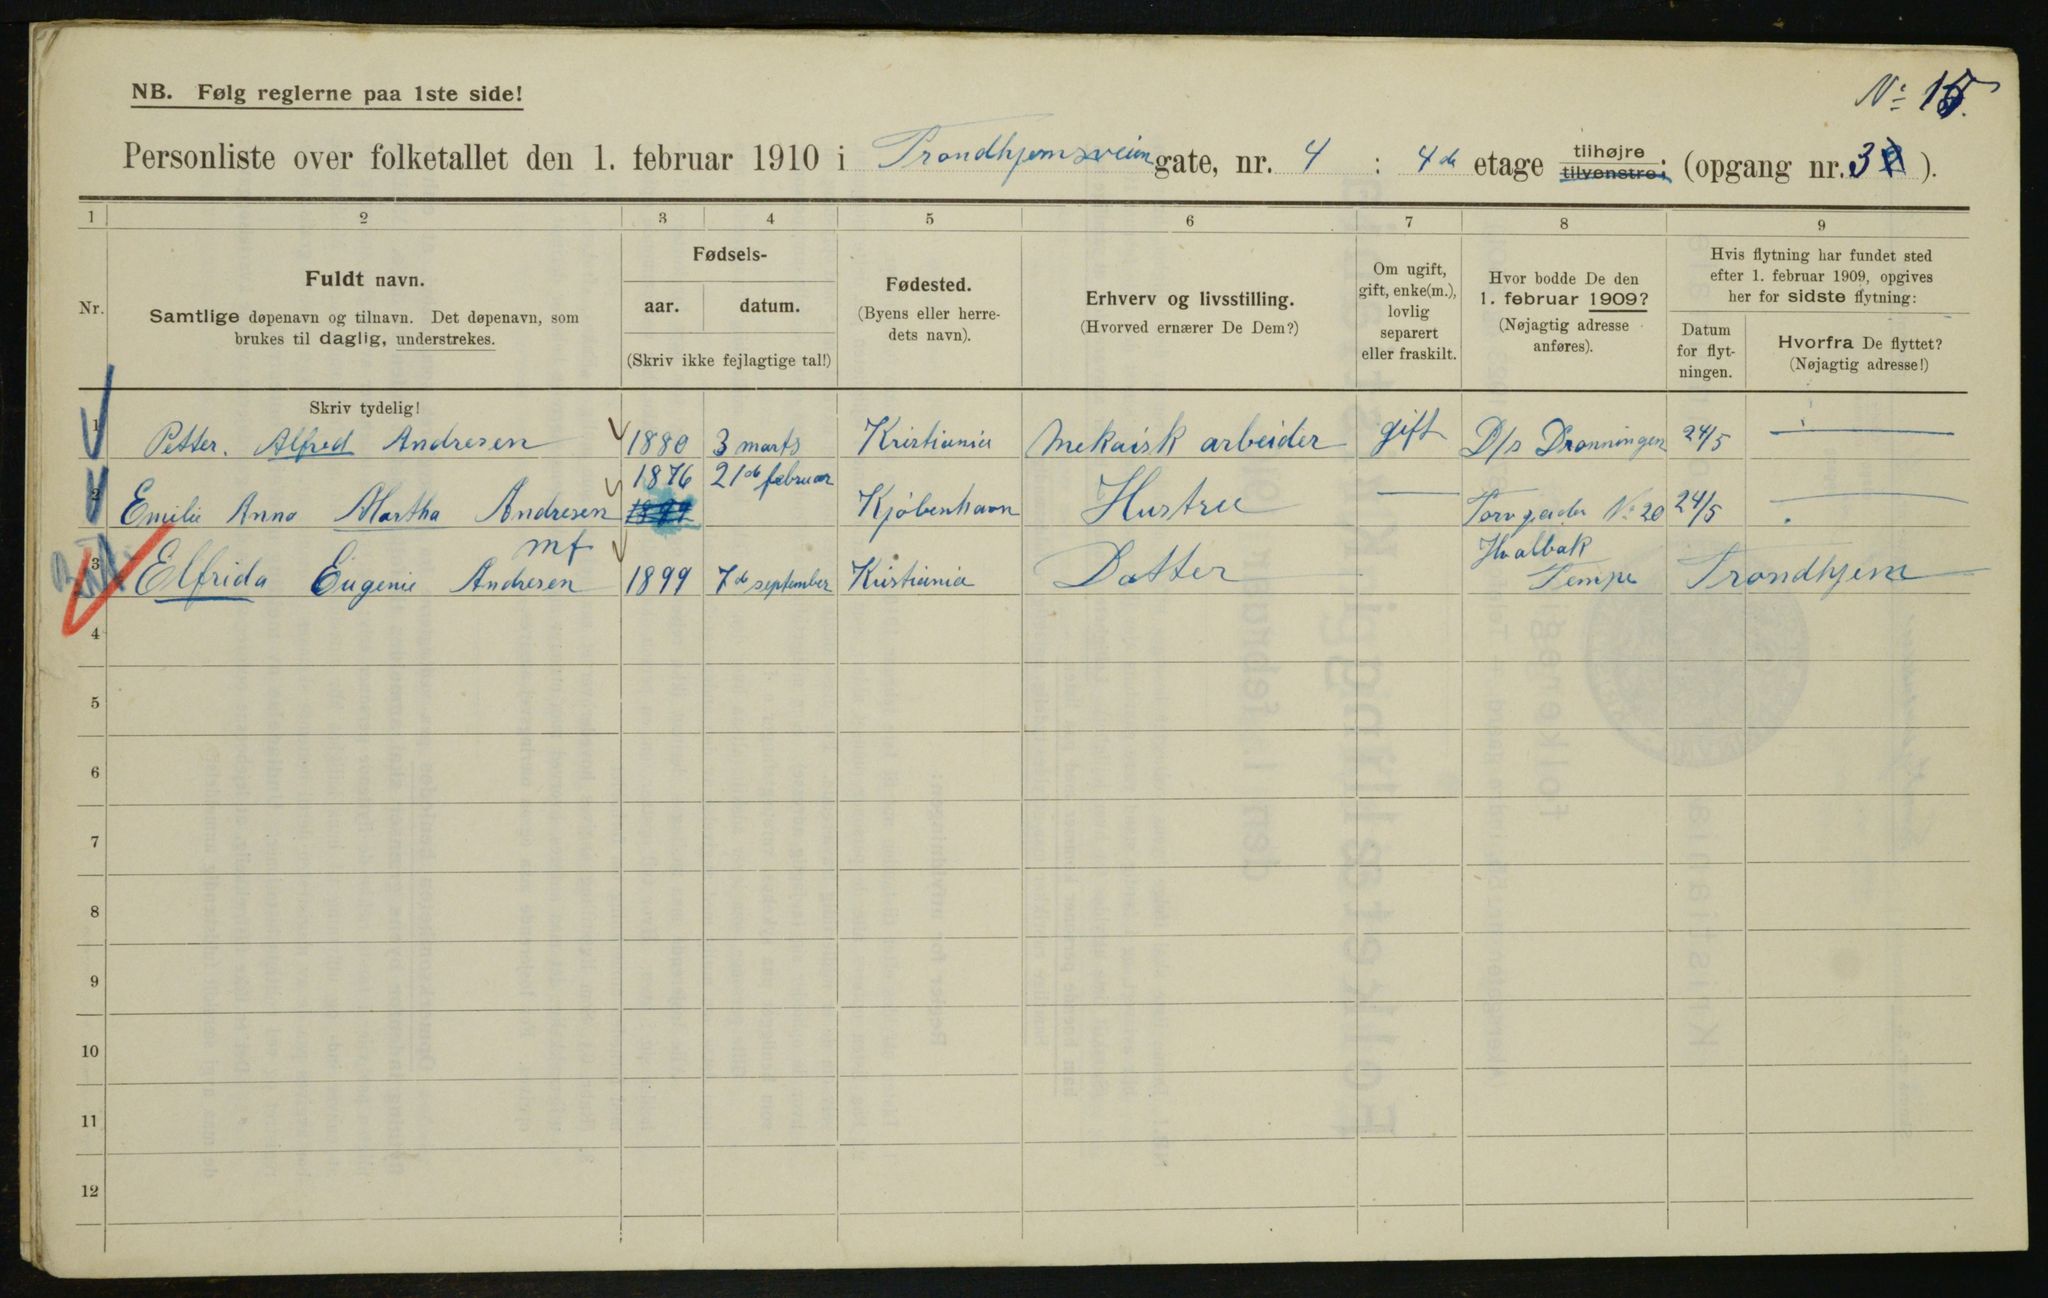 NB. Følg reglerne paa 1ste side!
Nº 15.
Personliste over folketallet den 1. februar 1910 i Trondhjemsveien gate, nr. 4 : 4de etage tilhøjre tilvenstre: (opgang nr. 3 ).
1 2 3 4 5 6 7 8 9
Nr.
Fuldt navn.
Samtlige døpenavn og tilnavn. Det døpenavn, som
brukes til daglig, understrekes.
Fødsels-
aar. datum.
(Skriv ikke fejlagtige tal!)
Fødested.
(Byens eller herre-
dets navn).
Erhverv og livsstilling.
(Hvorved ernærer De Dem?)
Om ugift,
gift, enke(m.),
lovlig
separert
eller fraskilt.
Hvor bodde De den
1. februar 1909?
(Nøjagtig adresse
anføres).
Hvis flytning har fundet sted
efter 1. februar 1909, opgives
her for sidste flytning:
Datum
for flyt-
ningen.
Hvorfra De flyttet?
(Nøjagtig adresse!)
Skriv tydelig!
1 Petter. Alfred Andresen 1880 3 marts Kristiania Mekaisk arbeider gift D/s Dronningen 24/5
1876 21de februar
2 Emilie Anna Martha Andresen 1899 Kjøbenhavn Hustru No 20 24/5
mf
Hvalbak
3 Elfrida Eugenie Andresen 1899 7de september Kristiania Datter Tempe Trondhjem
4
5
6
7
8
9
10
11
12